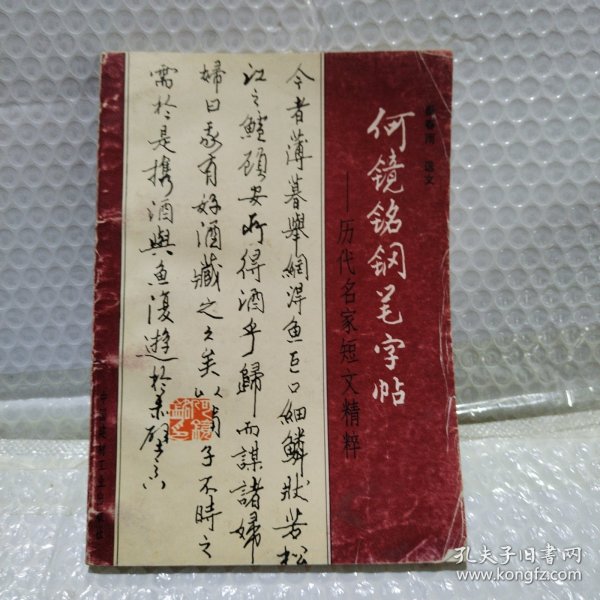 何镜铭钢笔字帖
——历代名家短文精粹
选文
今者薄暮举網得魚巨口細鱗狀若松
江之鱸顧安所得酒乎歸而謀諸婦
婦曰我有好酒藏之久矣以待子不時之
需於是攜酒與魚復遊於赤壁之下
孔夫子旧书网
www.kongfz.com